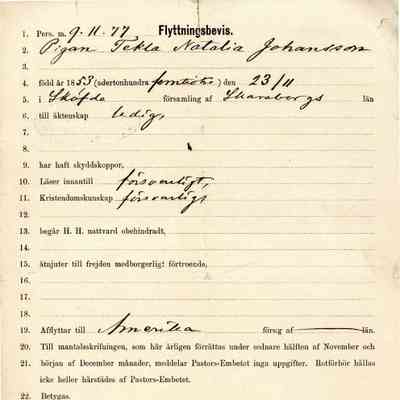 Flyttningsbevis.
1. Pers. m. 9.11.77
2. Pigan Tekla Natalia Johansson
3.
4. född år 1853 (adertonhundra femtiotre) den 23/11
5. i Sköfde församling af Skaraborgs län
6. till äktenskap ledig,
7.
8.
9. har haft skyddskoppor,
10. Läser innantill försvarligt,
11. Kristendomskunskap försvarligt
12.
13. begår H. H. nattvard obehindradt,
14.
15. åtnjuter till frejden medborgerligt förtroende,
16.
17.
18.
19. Afflyttar till Amerika församl. af län.
20. Till mantalsskrifningen, som här årligen förrättas under sednare hälften af November och
21. början af December månader, meddelar Pastors-Embetet inga uppgifter. Rotförhör hållas
icke heller härstädes af Pastors-Embetet.
22. Betygas.